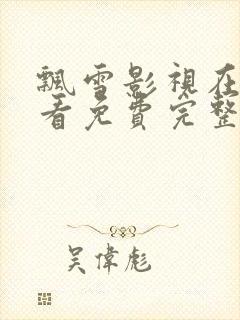 飄雪影視在
看免費完整
吳偉彪